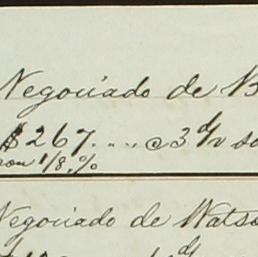 Negociado de B
$267.... c 3 d/v so
ron 1/8 %
Negociado de Watso